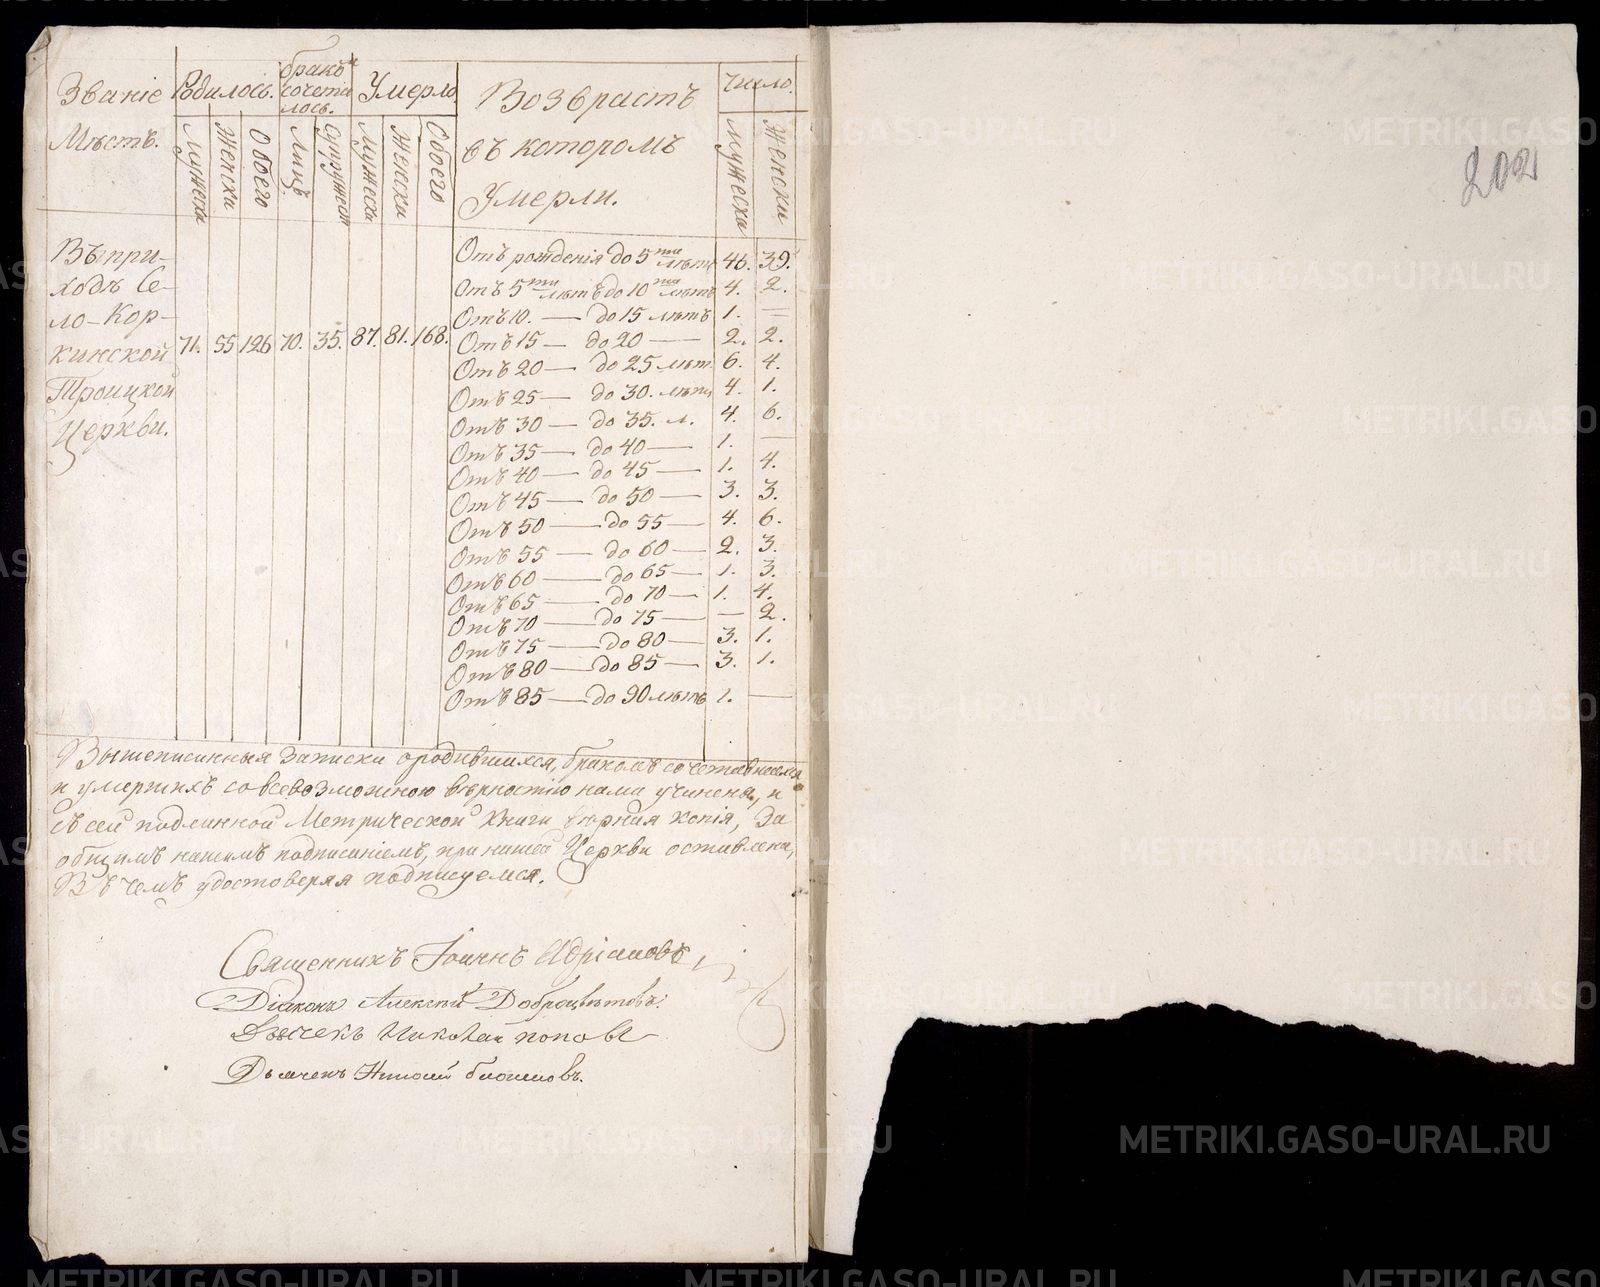 Званіе Родилось. бракосочеталось. Умерло Возврастъ Число.
Мѣстъ. Мужеска Женски Обоего Лицъ Супружест Мужеска Женски Обоего въ которомъ Мужеска Женски
Умерли.
Въ при-
ходѣ Се-
ло-Кор-
кинской
Троицкой
Церкви.
71. 55 126 70. 35. 87. 81. 168.
Отъ рожденія до 5ти лѣтъ 46. 39.
Отъ 5ти лѣтъ до 10ти лѣтъ 4. 2.
Отъ 10. — до 15 лѣтъ 1. —
Отъ 15 — до 20 — 2. 2.
Отъ 20 — до 25 лѣт. 6. 4.
Отъ 25 — до 30. лѣтъ 4. 1.
Отъ 30 — до 35. л. 4. 6.
Отъ 35 — до 40 — 1. —
Отъ 40 — до 45 — 1. 4.
Отъ 45 — до 50 — 3. 3.
Отъ 50 — до 55 — 4. 6.
Отъ 55 — до 60 — 2. 3.
Отъ 60 — до 65 — 1. 3.
Отъ 65 — до 70 — 1. 4.
Отъ 70 — до 75 — — 2.
Отъ 75 — до 80 — 3. 1.
Отъ 80 — до 85 — 3. 1.
Отъ 85 — до 90 лѣтъ 1. —
Вышеписанныя Записки о родившихся, бракомъ сочетавшихся
и умершихъ со всевозможною вѣрностію нами учинена, и
съ сей подлинной Метрической Книги вѣрная копія, За
общимъ нашимъ подписаніемъ, при нашей Церкви оставлена,
Въ чемъ удостоверяя подписуемся.
Священникъ Іоаннъ Адріановъ,
Діаконъ Алексѣй Доброцвѣтовъ:
Дьячекъ Николай поповъ
Дьячекъ
202
METRIKI.GASO-URAL.RU